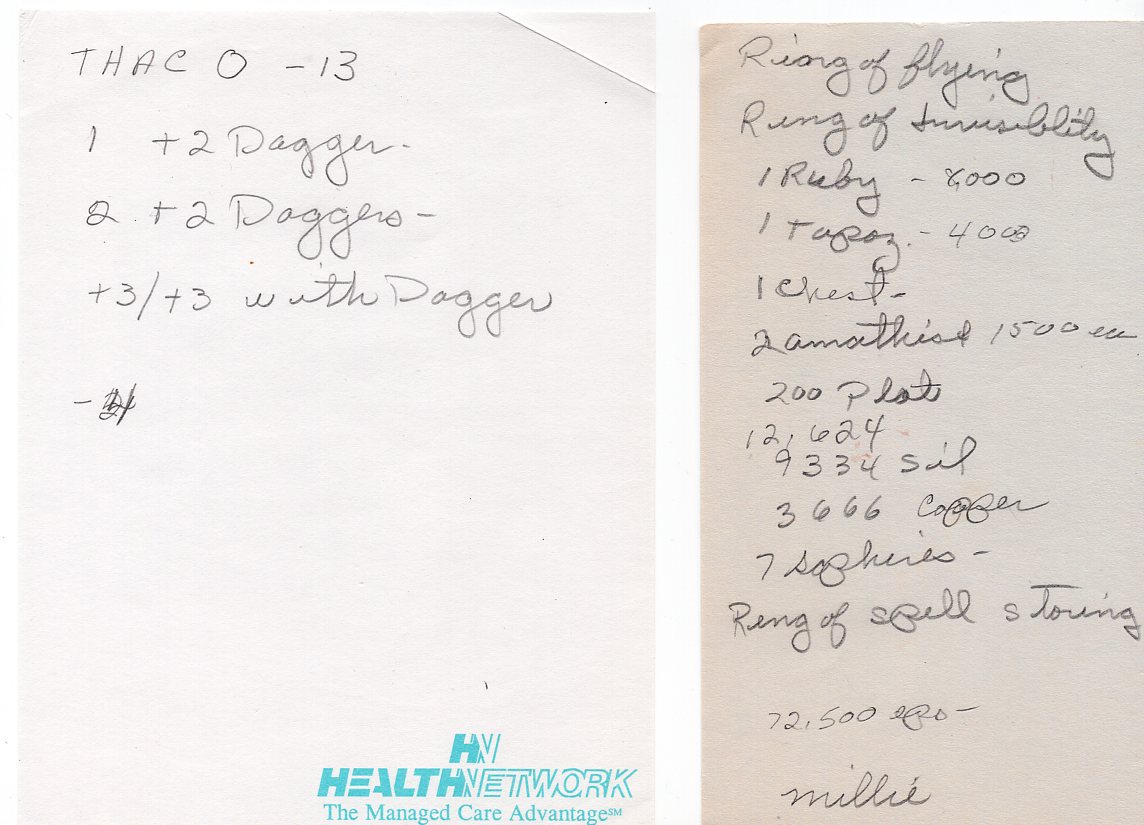 THAC O - 13
1 +2 Dagger -
2 +2 Daggers -
+3/+3 with Dagger
HN
HEALTHNETWORK
The Managed Care Advantage℠
Ring of flying
Ring of Invisiblity
1 Ruby - 8,000
1 Topaz - 4000
1 Chest -
2 amathist 1500 ea
200 Plat
12,624
9334 Sil
3666 Copper
7 Saphires -
Ring of spell storing
72,500 eps -
millie